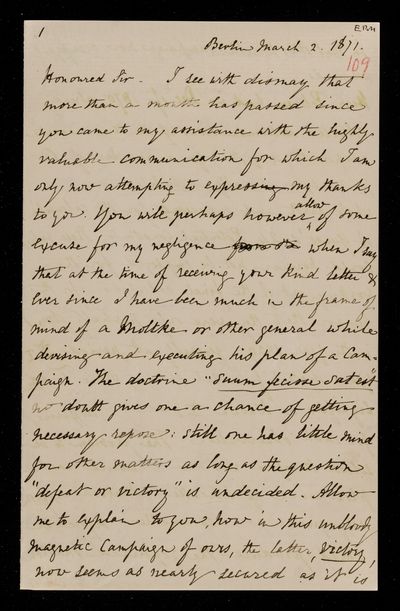 1
E.P.M
Berlin March 2. 1871.
109
Honoured Sir - I see with dismay that
more than a month has passed since
you came to my assistance with the highly
valuable communication for which I am
only now attempting to expressing my thanks
to you. You will perhaps however allow of some
excuse for my negligence when I say
that at the time of receiving your kind letter &
ever since I have been much in the frame of
mind of a Moltke or other general while
devising and executing his plan of a Cam-
paign. The doctrine "Suum fecisse sat est"
no doubt gives one a chance of getting
necessary repose: still one has little mind
for other matters as long as the question
"defeat or victory" is undecided. Allow
me to explain to you, how in this unbloody
magnetic Campaign of ours, the latter, victory,
now seems as nearly secured as it is